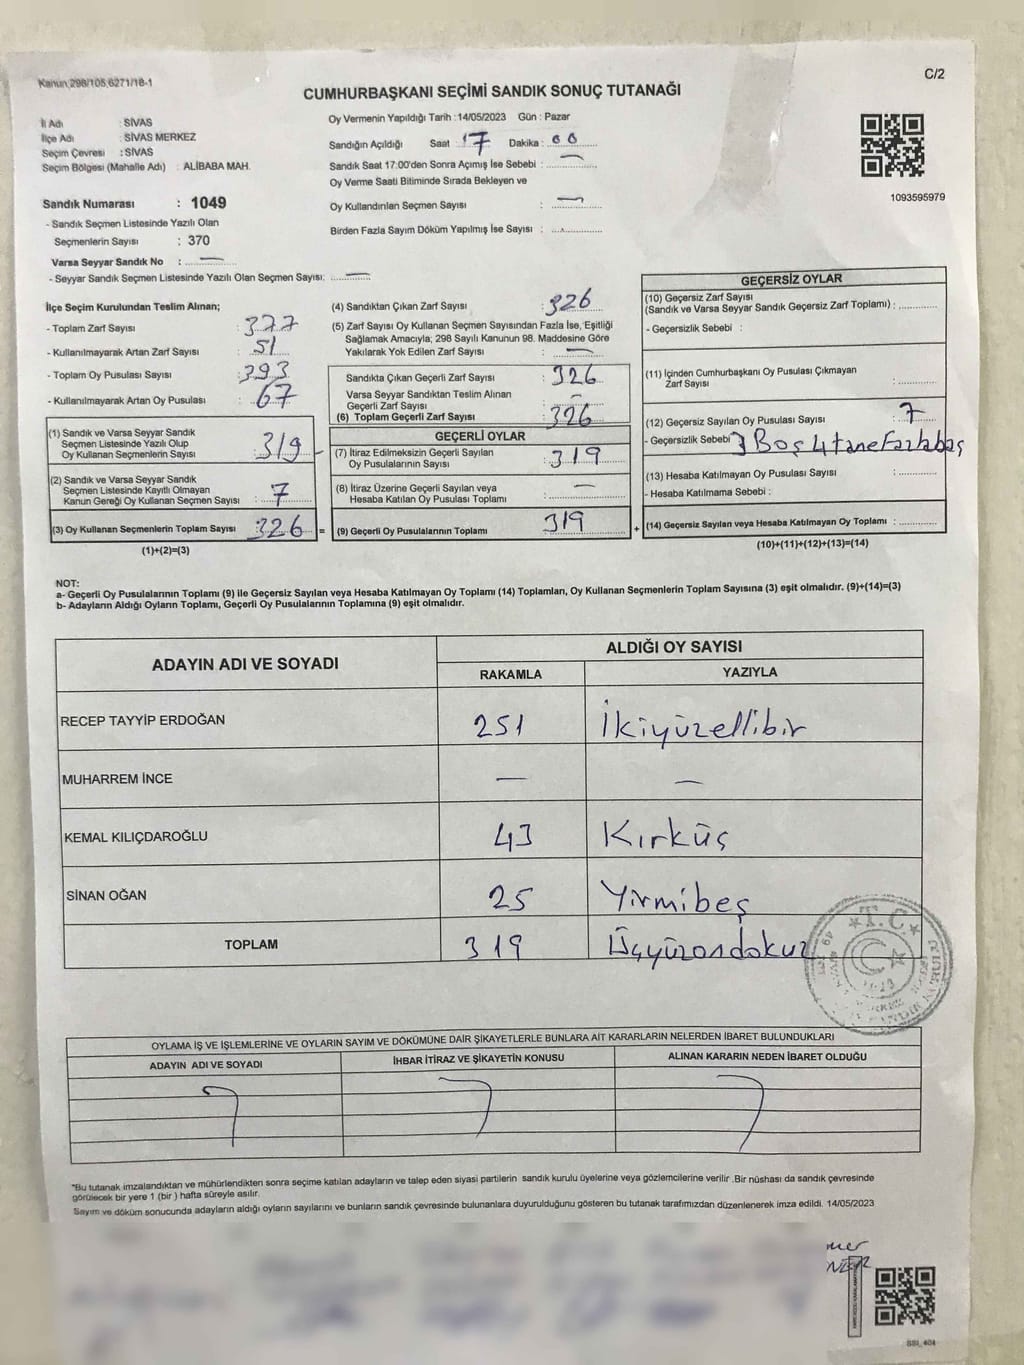 Kanun 298/105,6271/18-1
C/2
CUMHURBAŞKANI SEÇİMİ SANDIK SONUÇ TUTANAĞI
İl Adı : SİVAS
İlçe Adı : SİVAS MERKEZ
Seçim Çevresi : SİVAS
Seçim Bölgesi (Mahalle Adı) : ALİBABA MAH.
Sandık Numarası : 1049
- Sandık Seçmen Listesinde Yazılı Olan
Seçmenlerin Sayısı : 370
Varsa Seyyar Sandık No : —
- Seyyar Sandık Seçmen Listesinde Yazılı Olan Seçmen Sayısı: —
Oy Vermenin Yapıldığı Tarih :14/05/2023 Gün : Pazar
Sandığın Açıldığı Saat 17 Dakika : 00
Sandık Saat 17:00'den Sonra Açımış İse Sebebi : —
Oy Verme Saati Bitiminde Sırada Bekleyen ve
Oy Kullandırılan Seçmen Sayısı : —
Birden Fazla Sayım Döküm Yapılmış İse Sayısı :
1093595979
İlçe Seçim Kurulundan Teslim Alınan;
- Toplam Zarf Sayısı : 377
- Kullanılmayarak Artan Zarf Sayısı : 51
- Toplam Oy Pusulası Sayısı : 393
- Kullanılmayarak Artan Oy Pusulası : 67
(1) Sandık ve Varsa Seyyar Sandık
Seçmen Listesinde Yazılı Olup
Oy Kullanan Seçmenlerin Sayısı : 319
(2) Sandık ve Varsa Seyyar Sandık
Seçmen Listesinde Kayıtlı Olmayan
Kanun Gereği Oy Kullanan Seçmen Sayısı : 7
(3) Oy Kullanan Seçmenlerin Toplam Sayısı : 326 =
(1)+(2)=(3)
(4) Sandıktan Çıkan Zarf Sayısı : 326
(5) Zarf Sayısı Oy Kullanan Seçmen Sayısından Fazla İse, Eşitliği
Sağlamak Amacıyla; 298 Sayılı Kanunun 98. Maddesine Göre
Yakılarak Yok Edilen Zarf Sayısı : —
Sandıkta Çıkan Geçerli Zarf Sayısı : 326
Varsa Seyyar Sandıktan Teslim Alınan
Geçerli Zarf Sayısı : —
(6) Toplam Geçerli Zarf Sayısı : 326
GEÇERLİ OYLAR
(7) İtiraz Edilmeksizin Geçerli Sayılan
Oy Pusulalarının Sayısı : 319
(8) İtiraz Üzerine Geçerli Sayılan veya
Hesaba Katılan Oy Pusulası Toplamı : —
(9) Geçerli Oy Pusulalarının Toplamı 319 +
GEÇERSİZ OYLAR
(10) Geçersiz Zarf Sayısı
(Sandık ve Varsa Seyyar Sandık Geçersiz Zarf Toplamı) :
- Geçersizlik Sebebi :
(11) İçinden Cumhurbaşkanı Oy Pusulası Çıkmayan
Zarf Sayısı :
(12) Geçersiz Sayılan Oy Pusulası Sayısı : 7
- Geçersizlik Sebebi 3 Boş 4 tane Fazla baş
(13) Hesaba Katılmayan Oy Pusulası Sayısı :
- Hesaba Katılmama Sebebi :
(14) Geçersiz Sayılan veya Hesaba Katılmayan Oy Toplamı :
(10)+(11)+(12)+(13)=(14)
NOT:
a- Geçerli Oy Pusulalarının Toplamı (9) ile Geçersiz Sayılan veya Hesaba Katılmayan Oy Toplamı (14) Toplamları, Oy Kullanan Seçmenlerin Toplam Sayısına (3) eşit olmalıdır. (9)+(14)=(3)
b- Adayların Aldığı Oyların Toplamı, Geçerli Oy Pusulalarının Toplamına (9) eşit olmalıdır.
ADAYIN ADI VE SOYADI
ALDIĞI OY SAYISI
RAKAMLA YAZIYLA
RECEP TAYYİP ERDOĞAN 251 İkiyüzellibir
MUHARREM İNCE — —
KEMAL KILIÇDAROĞLU 43 Kırküç
SİNAN OĞAN 25 Yirmibeş
TOPLAM 319 Üçyüzondokuz
T.C.
OYLAMA İŞ VE İŞLEMLERİNE VE OYLARIN SAYIM VE DÖKÜMÜNE DAİR ŞİKAYETLERLE BUNLARA AİT KARARLARIN NELERDEN İBARET BULUNDUKLARI
ADAYIN ADI VE SOYADI İHBAR İTİRAZ VE ŞİKAYETİN KONUSU ALINAN KARARIN NEDEN İBARET OLDUĞU
*Bu tutanak imzalandıktan ve mühürlendikten sonra seçime katılan adayların ve talep eden siyasi partilerin sandık kurulu üyelerine veya gözlemcilerine verilir .Bir nüshası da sandık çevresinde
görülecek bir yere 1 (bir ) hafta süreyle asılır.
Sayım ve döküm sonucunda adayların aldığı oyların sayılarını ve bunların sandık çevresinde bulunanlara duyurulduğunu gösteren bu tutanak tarafımızdan düzenlenerek imza edildi. 14/05/2023